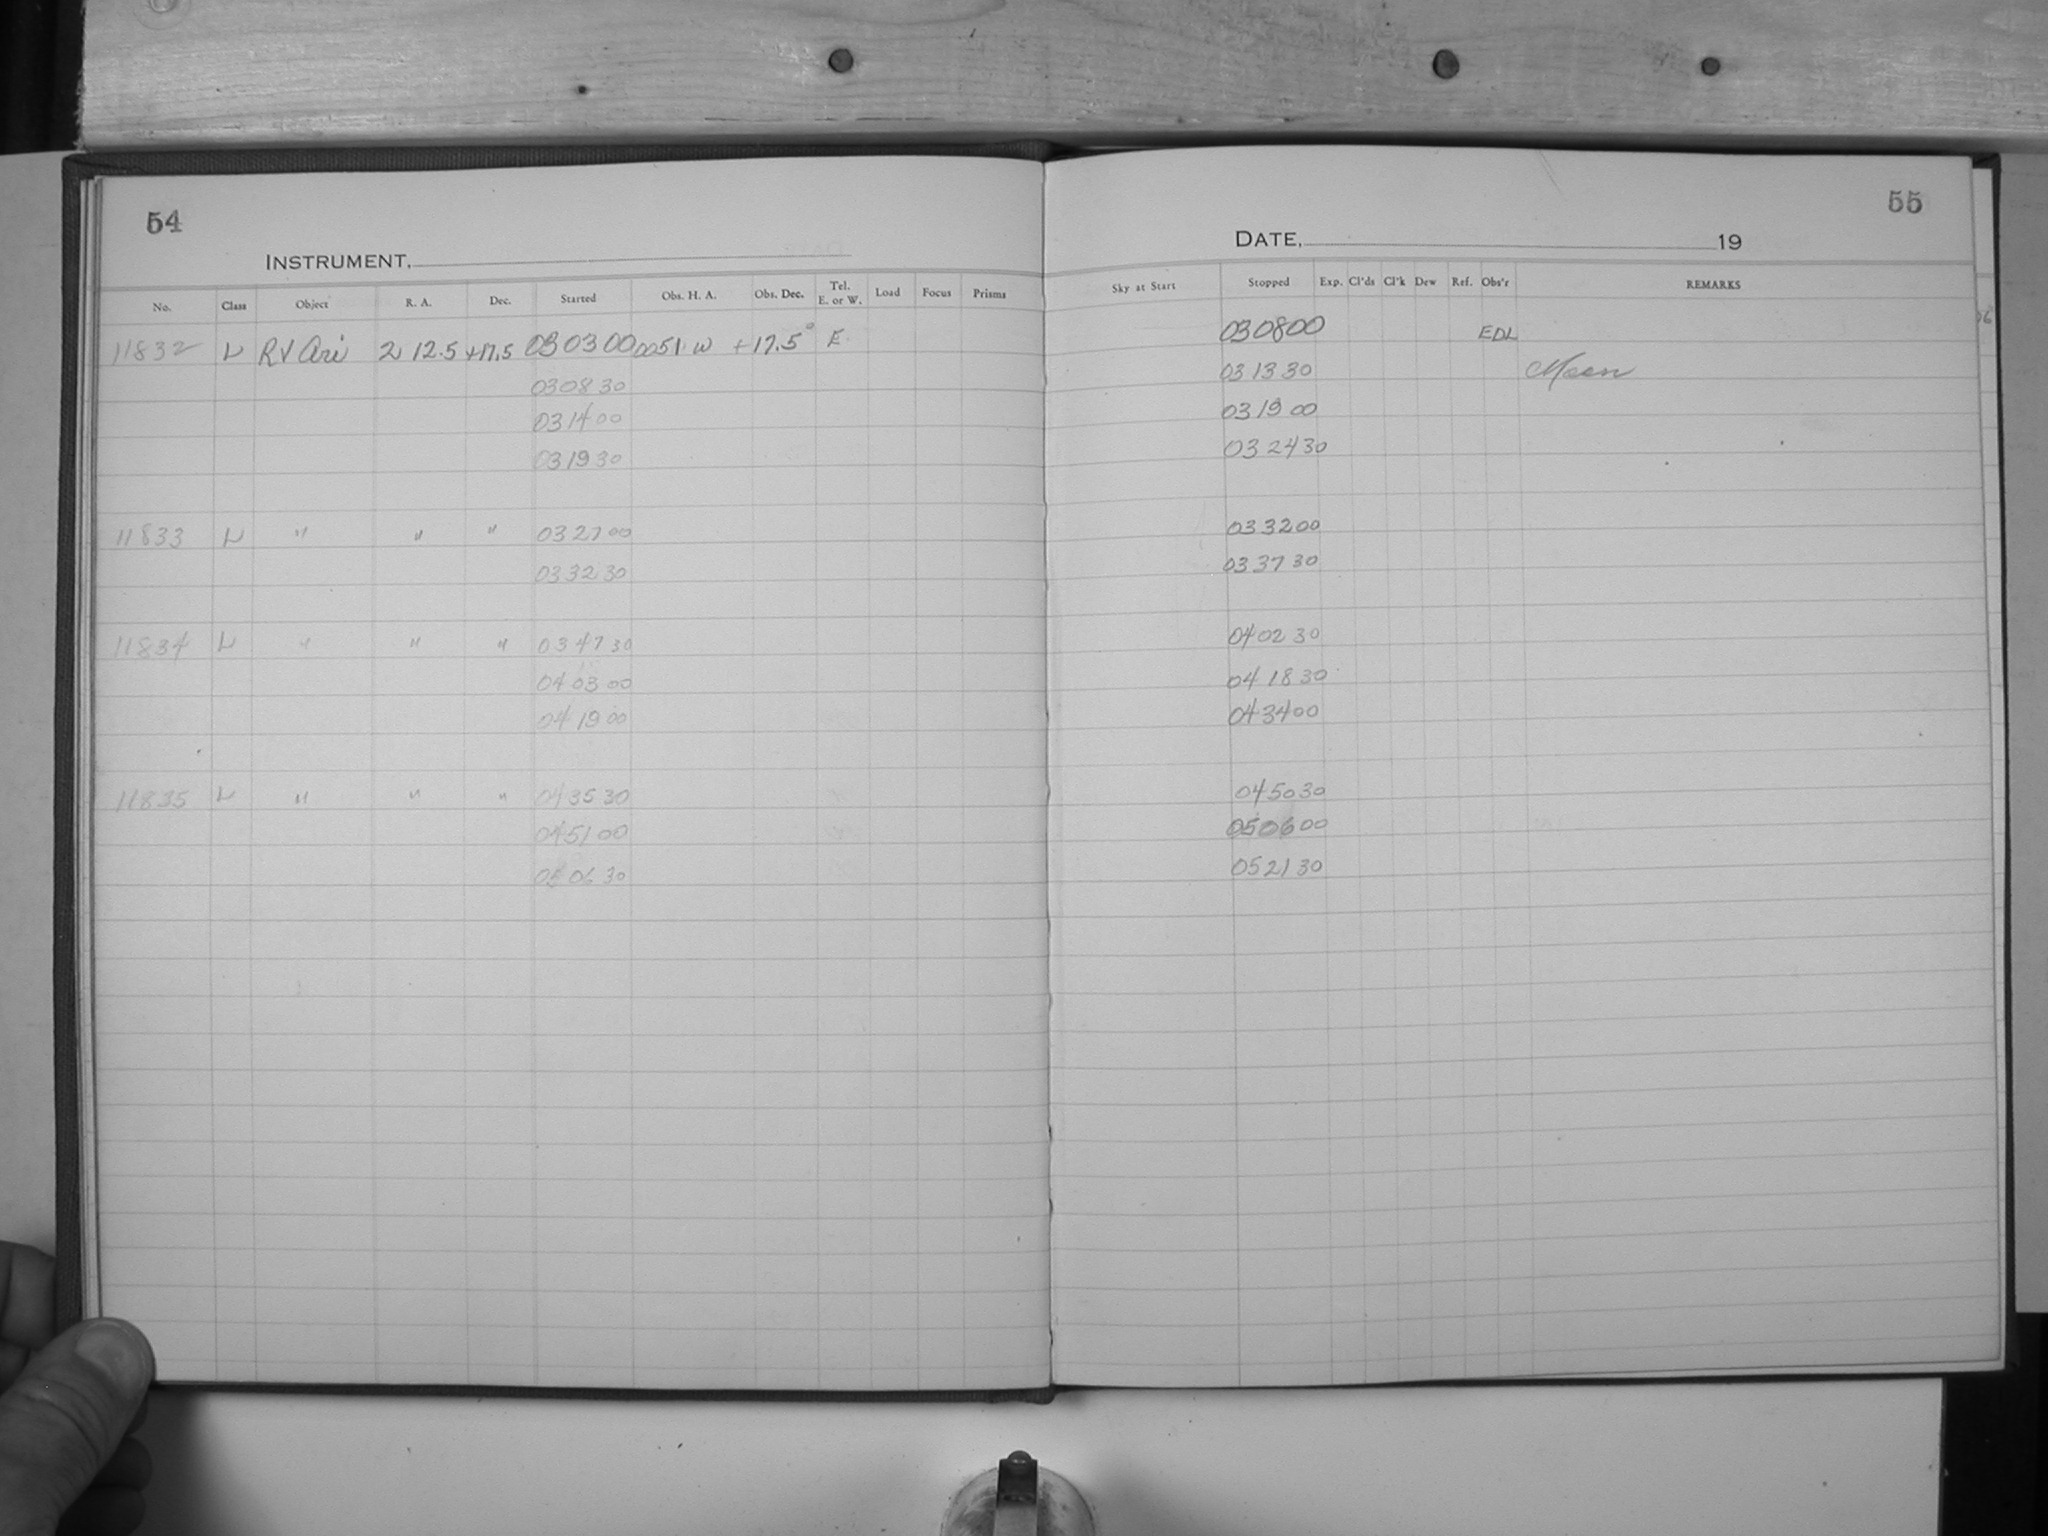 54
INSTRUMENT,
No. Class Object R. A. Dec. Started Obs. H. A. Obs. Dec. Tel. E. or W. Load Focus Prisms
11832 L RV Ari 2 12.5 +17.5 03 03 00 0051 W +17.5° E
03 08 30
03 14 00
03 19 30
11833 L " " " 03 27 00
03 32 30
11834 L " " " 03 47 30
04 03 00
04 19 00
11835 L " " " 04 35 30
04 51 00
05 06 30
55
DATE, 19
Sky at Start Stopped Exp. Cl'ds Cl'k Dew Ref. Obs'r REMARKS
03 08 00 EDL
03 13 30 Moon
03 19 00
03 24 30
03 32 00
03 37 30
04 02 30
04 18 30
04 34 00
04 50 30
05 06 00
05 21 30